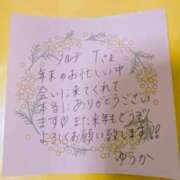 Tさま
年末のお忙しい中
会いに来てくれて
本当にありがとうござい
ます♡また来年もどうぞ
よろしくお願い致します!!
ゆうか